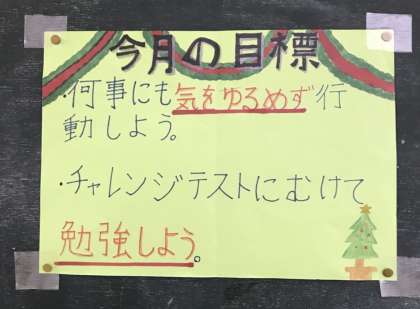 今月の目標
・何事にも気をゆるめず行
動しよう。
・チャレンジテストにむけて
勉強しよう。